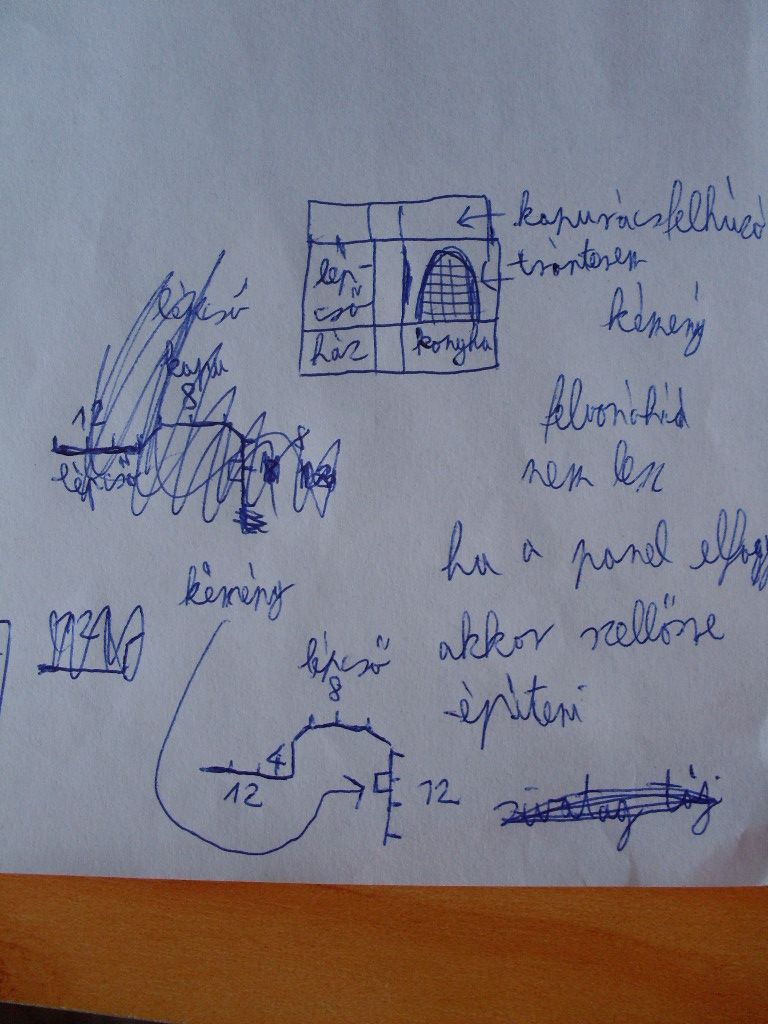 kapurácsfelhúzó
trónterem
lép-
cső
ház
konyha
kémény
lépcső
kapu
8
12
lépcső
8
felvonóhíd
nem lesz
ha a panel elfogy
akkor szellősre
építeni
kémény
lépcső
8
4
12
12
sivatag táj